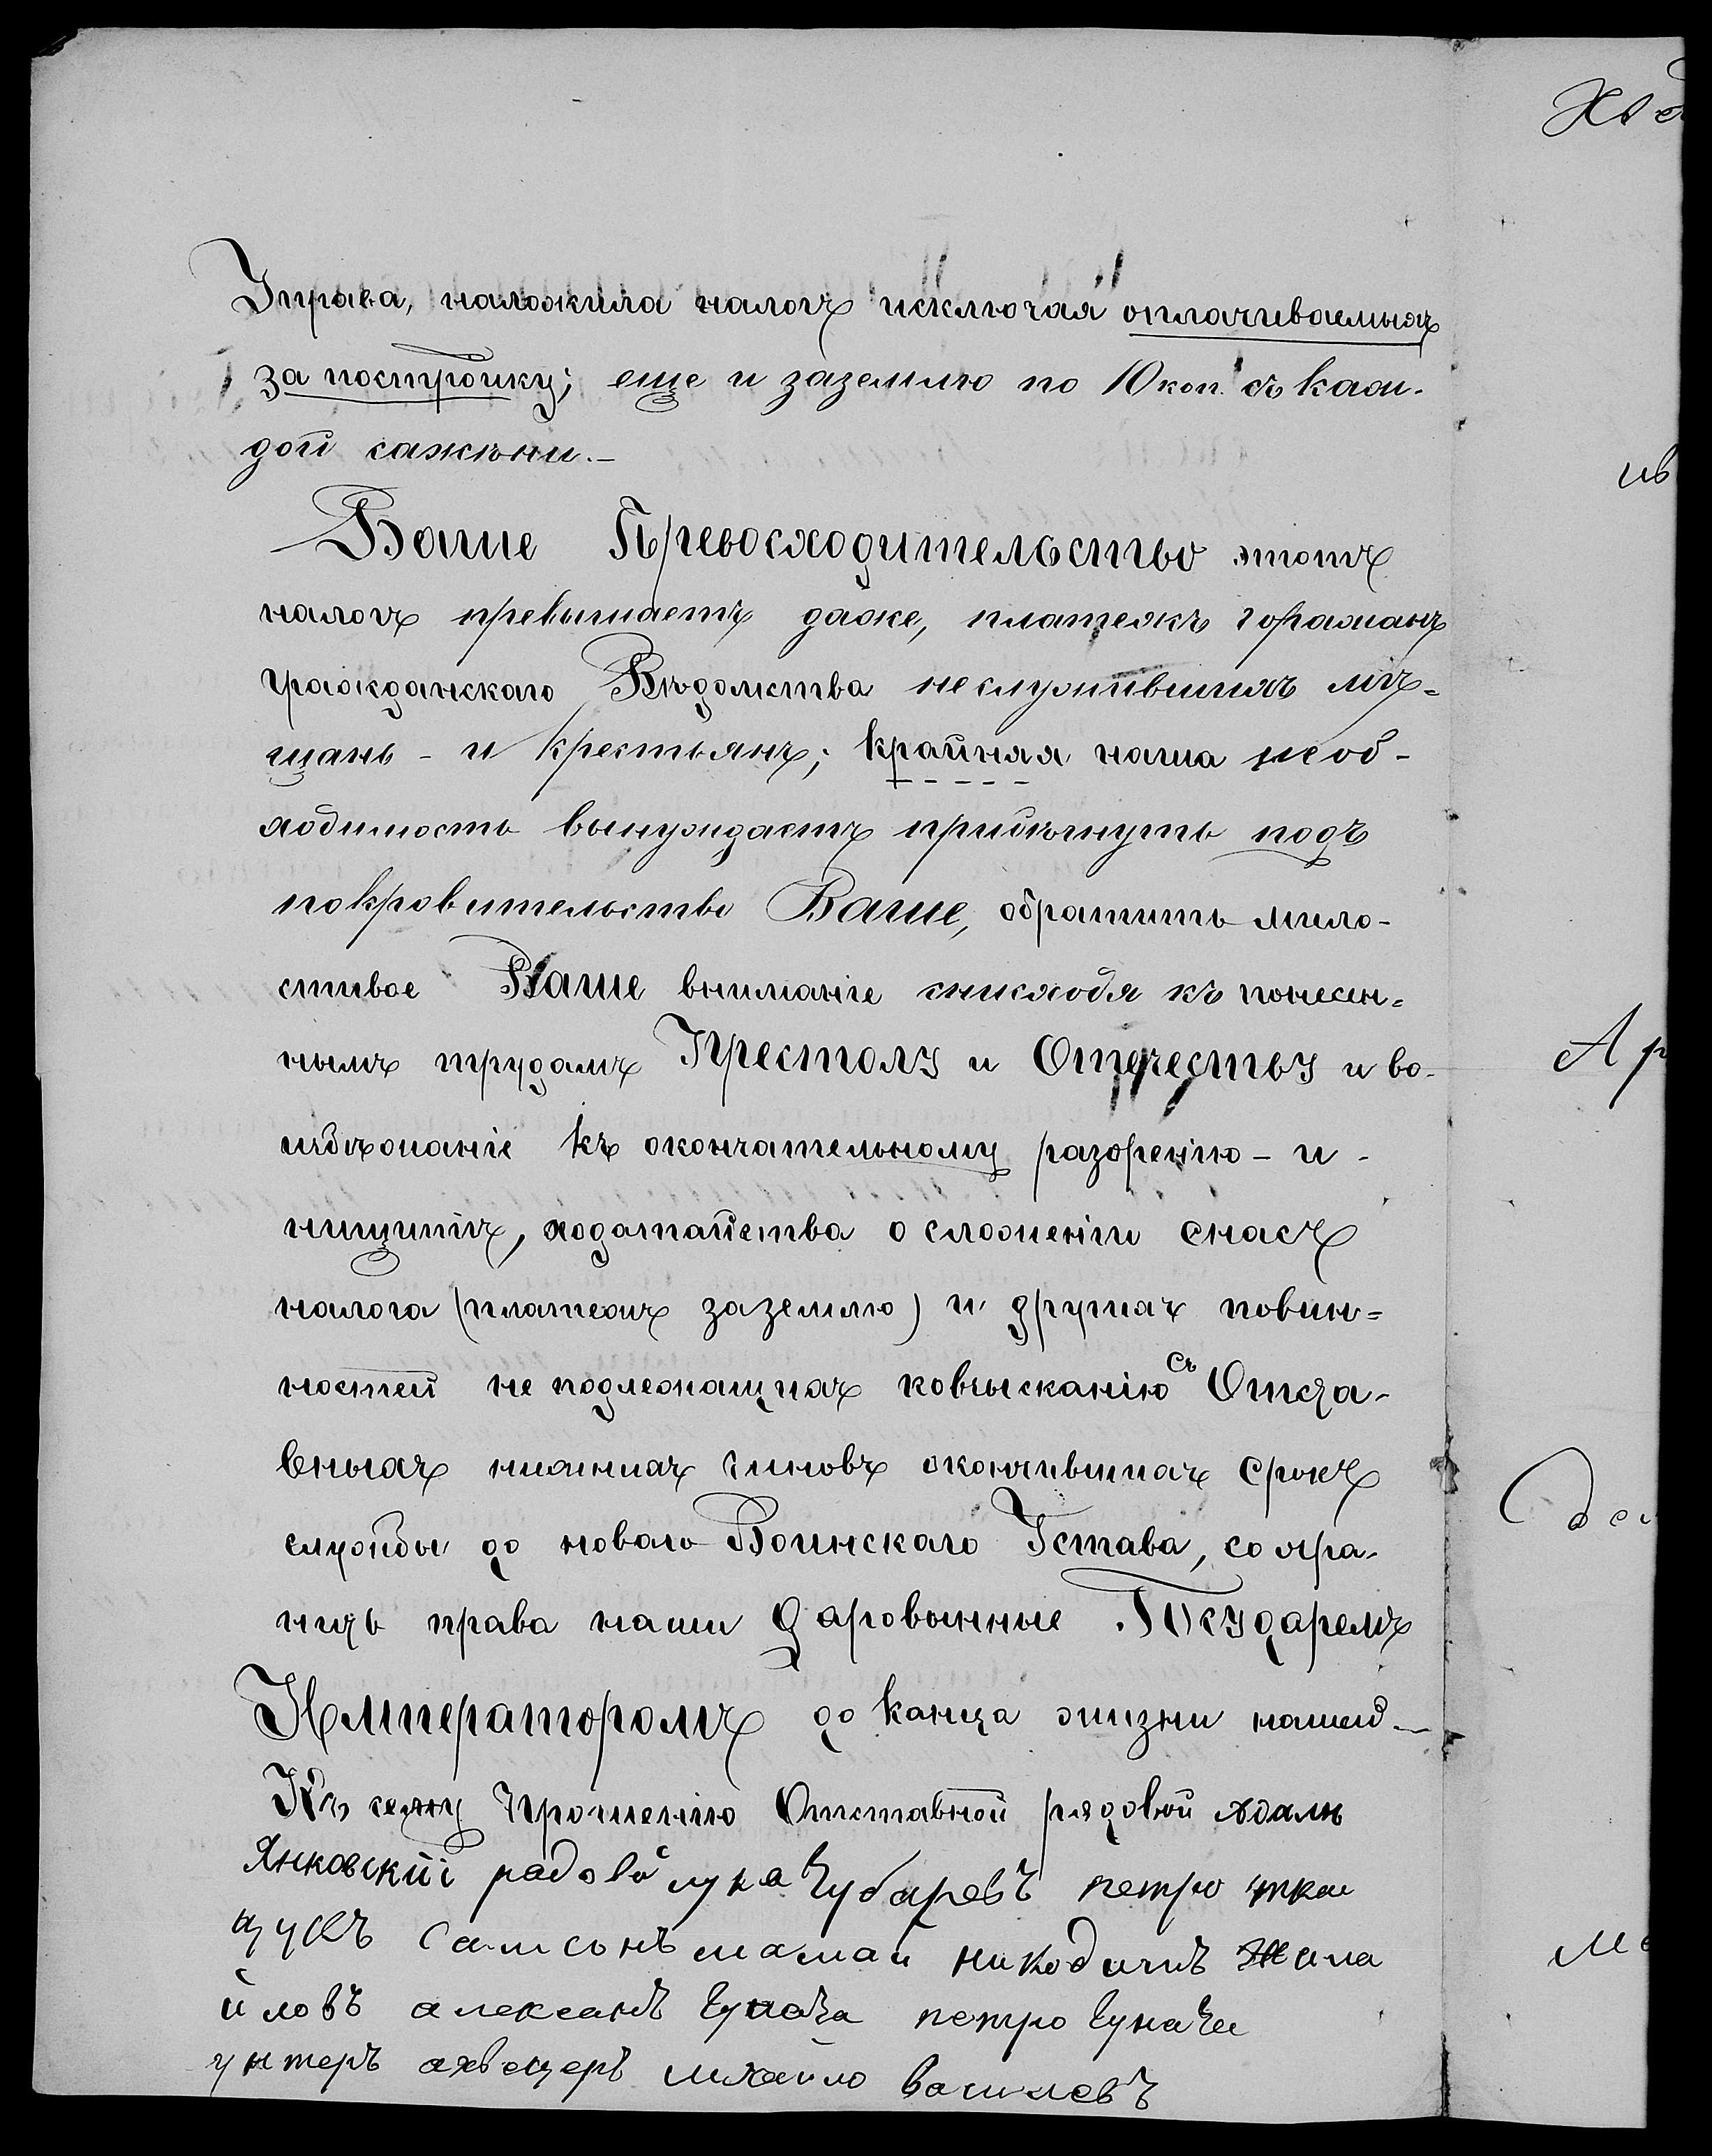 Управа, наложила налогъ исключая оплачиваемыхъ
за постройку; еще и заземлю по 10 коп. съ каж-
дой сажѣни.-
Ваше Превосходительство этотъ
налогъ превышаетъ даже, платежъ горажанъ
гражданскаго Вѣдомства неслужившихъ мѣ-
щань - и крестьянъ; крайняя наша необ-
ходимость вынуждаетъ прибѣгнуть подъ
покровительство Ваше, обратить мило-
стивое Ваше вниманіе снисходя къ понесен-
нымъ трудамъ Престолу и Отечеству и во-
избѣжаніе къ окончательному разоренію - и -
нищитѣ, ходатайства о сложеніи снасъ
налога (платежъ заземлю) и другихъ повин-
ностей не подлежащихъ ковзысканію съ Отста-
вныхъ нижнихъ чиновъ окончившихъ срокъ
службы до новаго Воинскаго Устава, сохра-
нить права наши дарованные Государемъ
Императоромъ до конца жизни нашей.-
Къ сему прошенію Отставной рядовой Адамъ
Янковскій радовой лука Чубаревъ петро
Самсонъ мамай никодимъ
йловъ александъ петро
унтеръ ахвецеръ михайло василевъ
Ар